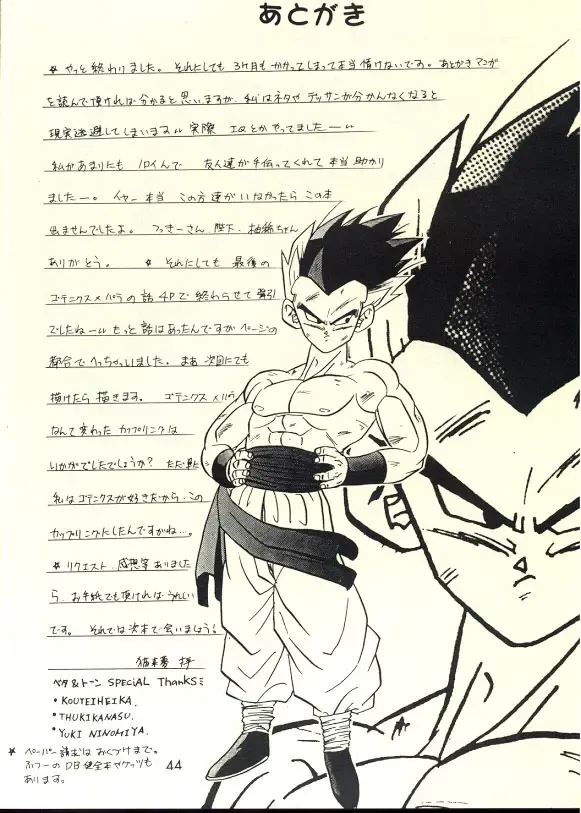 あとがき
★ やっと終わりました。それにしても3ヶ月もかかってしまって本当情けないです。あとがきマンガ
を読んで頂ければ分かると思いますが、私はネタやデッサンが分かんなくなると
現実逃避してしまいます 実際 IQとかやってましたー
私があまりにも 友人達が手伝ってくれて本当助かり
ましたー。イヤー本当 この方達がいなかったら この本
出ませんでしたよ。つっきーさん、陛下、柚希ちゃん
ありがとう。 ★ それにしても 最後の
ゴテニクス×パラの話 4Pで 終わらせて 強引
でしたねー もっと話はあったんですがページの
都合でへっちゃいました。まあ 次回にでも
描けたら描きます。 ゴテニクス×パラ
なんて変わった カップリングは
いかがでしたでしょうか? ただ単に
私はゴテニクスが好きだから、この
カップリングにしたんですがね…。
★ リクエスト、感想等ありました
ら、お手紙でも頂ければうれしい
です。 それでは次本で会いましょう!
ベタ&トーン SPECiAL ThaNKS
・KOUTEIHEIKA.
・THUKIKANASU.
・YUKI NINOMIYA.
★ ペーパー請求はおくづけまで。
ふつーのDB健全本やグッツも
あります。
44